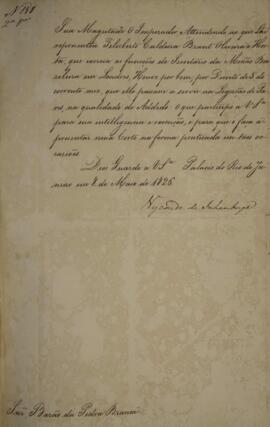 Nº 138
2ª via
Sua Magestade O Imperador Attendendo ao que Lhe
representou Felisberto Caldeira Brant Oliveira e Horta,
que exercia as funcções de Secretario da Missão Bra-
sileira em Londres, Houve por bem, por Decreto de 5 do
corrente mez, que elle passasse a servir na Legação de Pa-
ris, na qualidade de Addido. O que participo a V. Sª
para sua intelligencia e execução, e para que o faça a-
presentar nessa Corte na forma praticada em taes oc-
casiões.
Deos Guarde a V. Sª Palacio do Rio de Ja-
neiro em 8 de Maio de 1826.
Visconde de Inhambupe
Snr. Barão da Pedra Branca